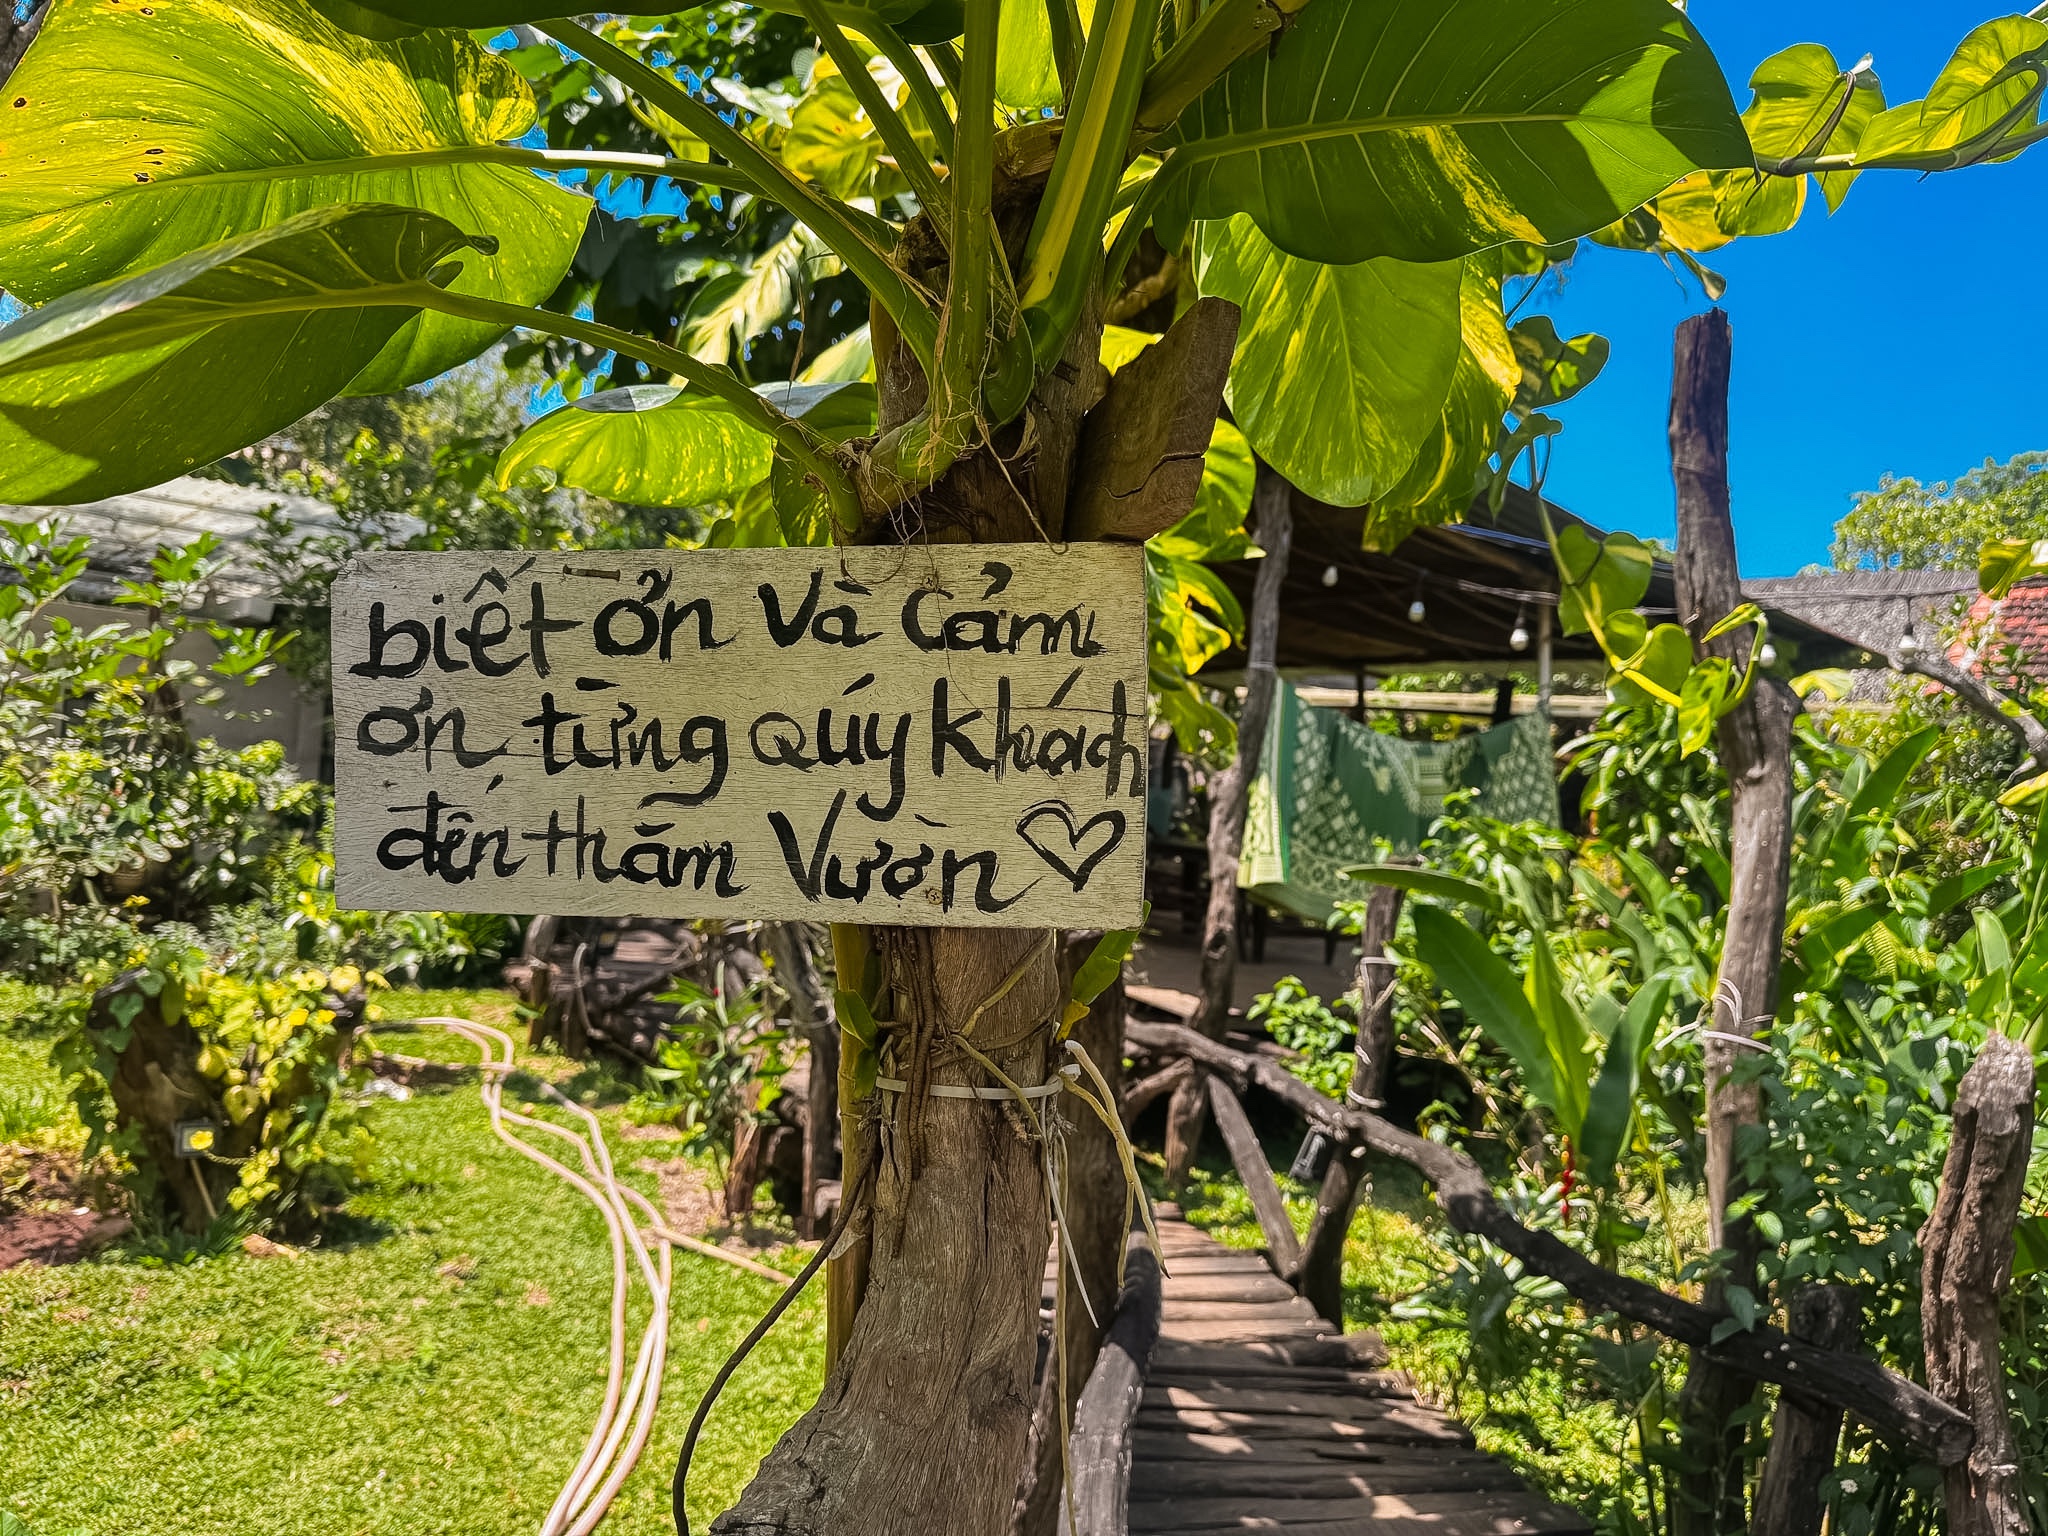 biết ơn và cảm
ơn từng quý khách
đến thăm Vườn